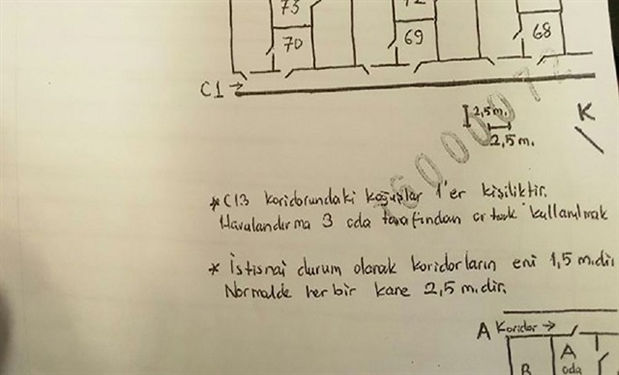 73
72
70
69
68
C1 →
2,5 m.
2,5 m.
K
* C13 koridorundaki koğuşlar 1'er kişiliktir.
Havalandırma 3 oda tarafından ortak kullanılmak
* İstisnai durum olarak koridorların eni 1,5 m.dir
Normalde her bir kare 2,5 m.dir.
A Koridor →
A
B oda